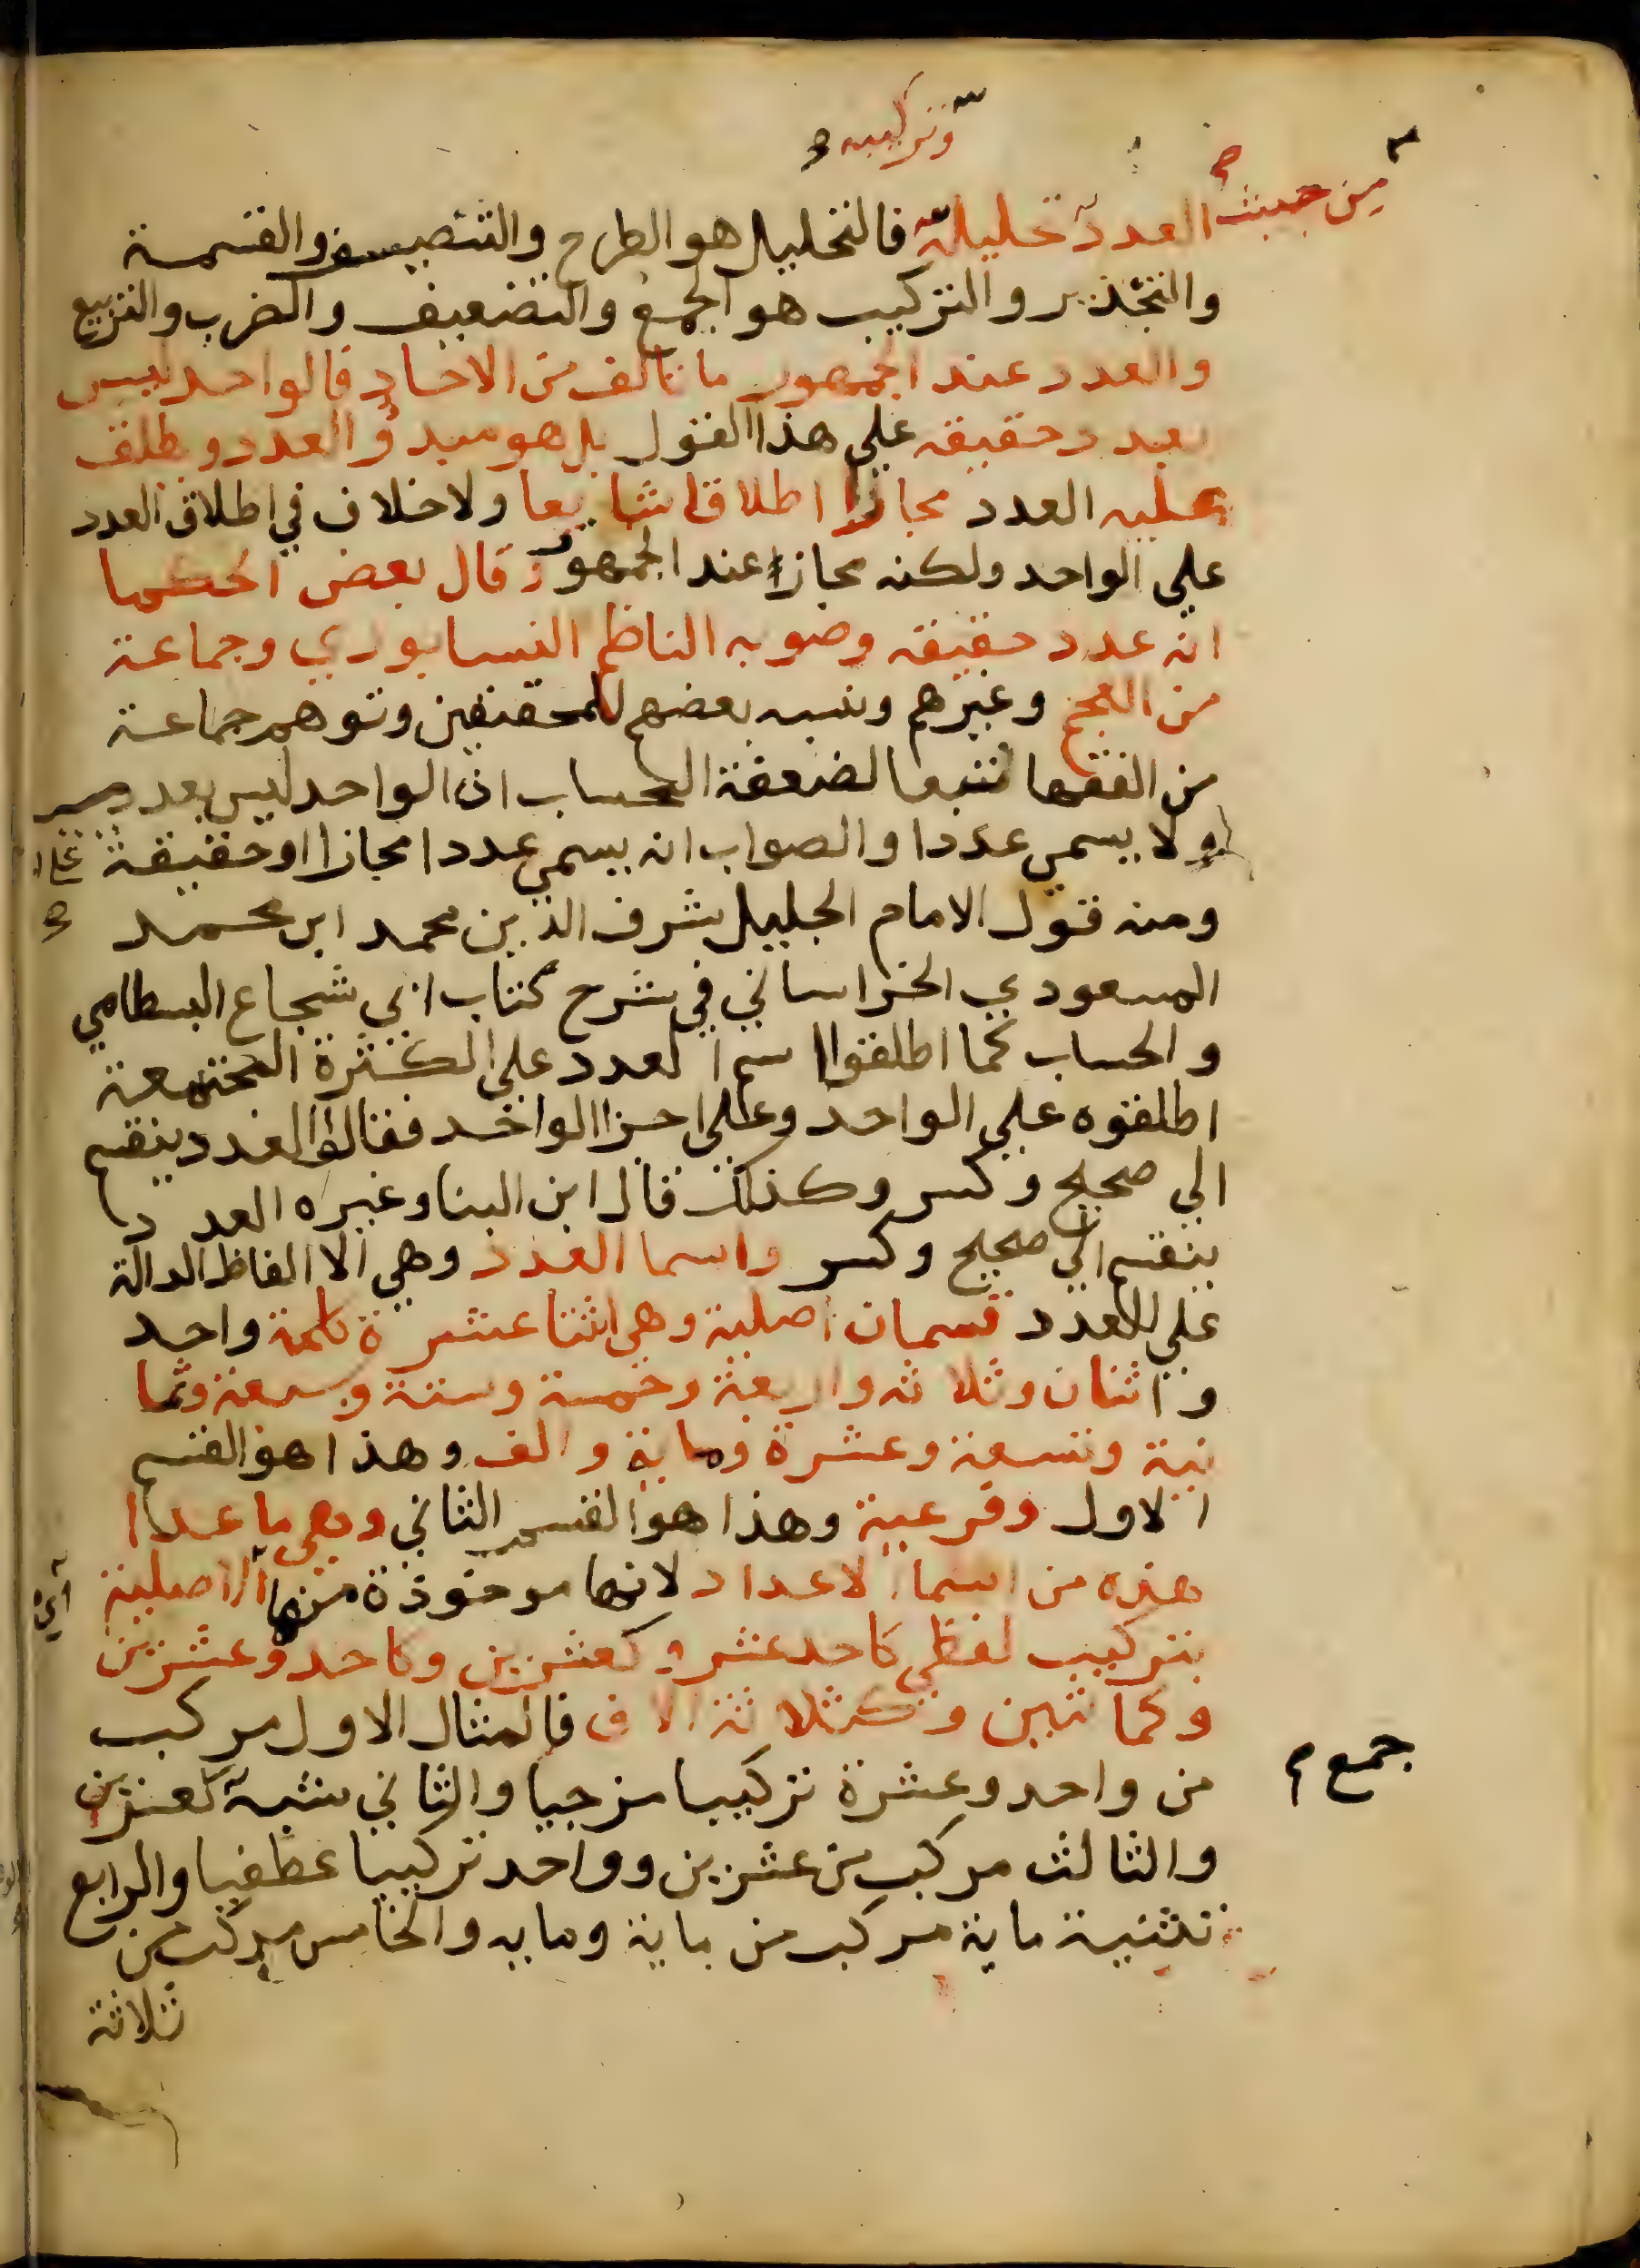 وتركيبه صح
من حيث صح
العدد تحليله فالتحليل هو الطرح والتنصيف والقسمة
والتجذير والتركيب هو الجمع والتضعيف والضرب والتربيع
والعدد عند الجمهور ما تالف من الاحاد فالواحد ليس
بعدد حقيقه على هذا القول بل هو مبدؤ العدد ويطلق
عليه العدد مجازا اطلاقا شايعا ولا خلاف في اطلاق العدد
علي الواحد ولكنه مجازا عند الجمهور وقال بعض الحكما
انه عدد حقيقه وصوبه الناظم النيسابوري وجماعة
من العجم وغيرهم ونسبه بعضهم للمحققين وتوهم جماعة
من الفقها تتبعا لضعفة الحساب ان الواحد ليس بعدد
ولا يسمى عددا والصواب انه يسمى عددا مجازا او حقيقة
ومنه قول الامام الجليل شرف الدين محمد ابن محمد
المسعودي الخراساني في شرح كتاب ابي شجاع البسطامي
والحساب كما اطلقوا اسم العدد على الكثرة المجتمعة
اطلقوه علي الواحد وعلى اجزا الواحد فقالوا العدد ينقسم
الي صحيح وكسر وكذلك قال ابن البنا وغيره العدد
ينقسم الى صحيح وكسر واسما العدد وهي الالفاظ الدالة
علي العدد قسمان اصلية وهي اثنتا عشرة كلمة واحد
واثنان وثلاثه واربعة وخمسة وستة وسبعة وثما
نية وتسعة وعشرة وماية والف وهذا هو القسم
الاول وفرعية وهذا هو القسم الثاني وهي ما عدا
هذه من اسما الاعداد لانها موخوذة منها الاصلية
اي
بتركيب لفظي كاحد عشر وكعشرين وكاحد وعشرين
وكمائتين وكثلاثة الاف فالمثال الاول مركب
من واحد وعشرة تركيبا مزجيا والثاني شبه كعشرين
جمع
والثالث مركب من عشرين وواحد تركيبا عطفيا والرابع
تثنية ماية مركب من ماية ومايه والخامس مركب من
ثلاثة